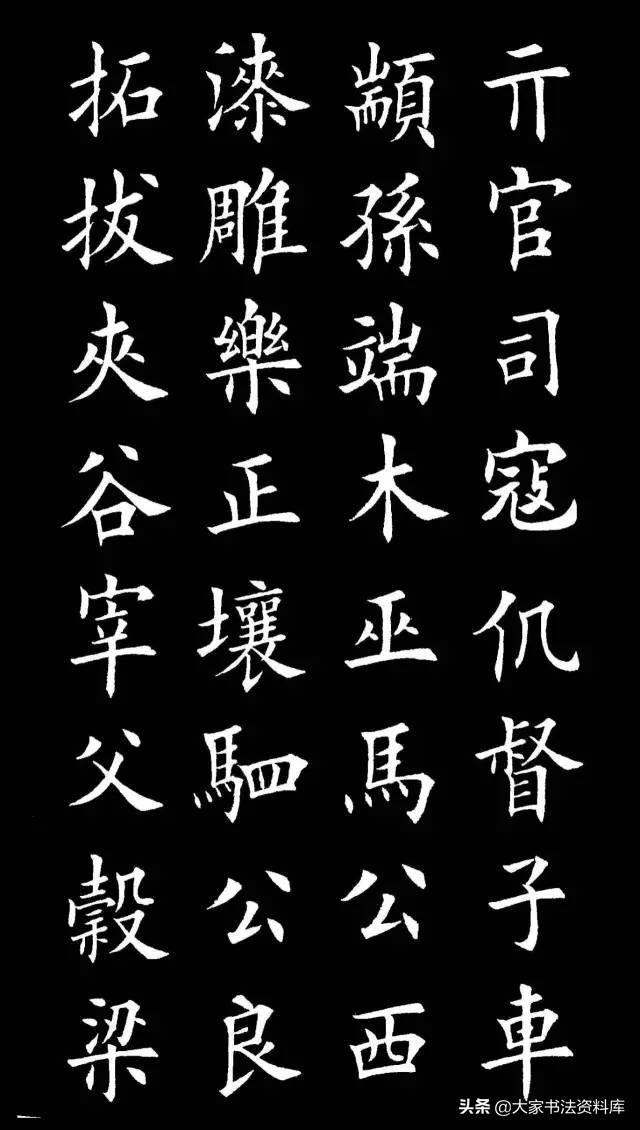 亓官司寇仉督子車
顓孫端木巫馬公西
漆雕樂正壤駟公良
拓拔夾谷宰父穀梁
头条 @大家书法资料库